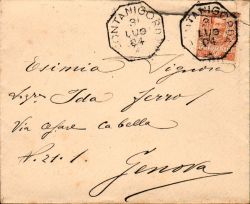 FONTANIGORDA
31
LUG
04
FONTANIGORDA
31
LUG
04
Esimia Signora
Sigra Ida Ferro
Via Cesare Cabella
N. 21. 1
Genova